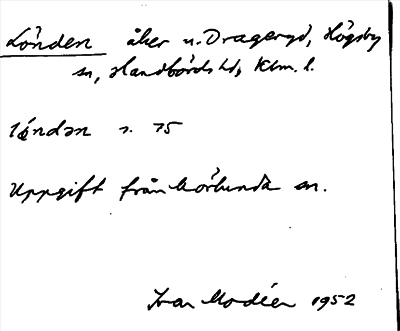 Lönden åker u. Drageryd, Högsby
sn, Handbörds hd, Klm. l.
löndən s. 75
Uppgift från Mörlunda sn.
Ivar Modéer 1952